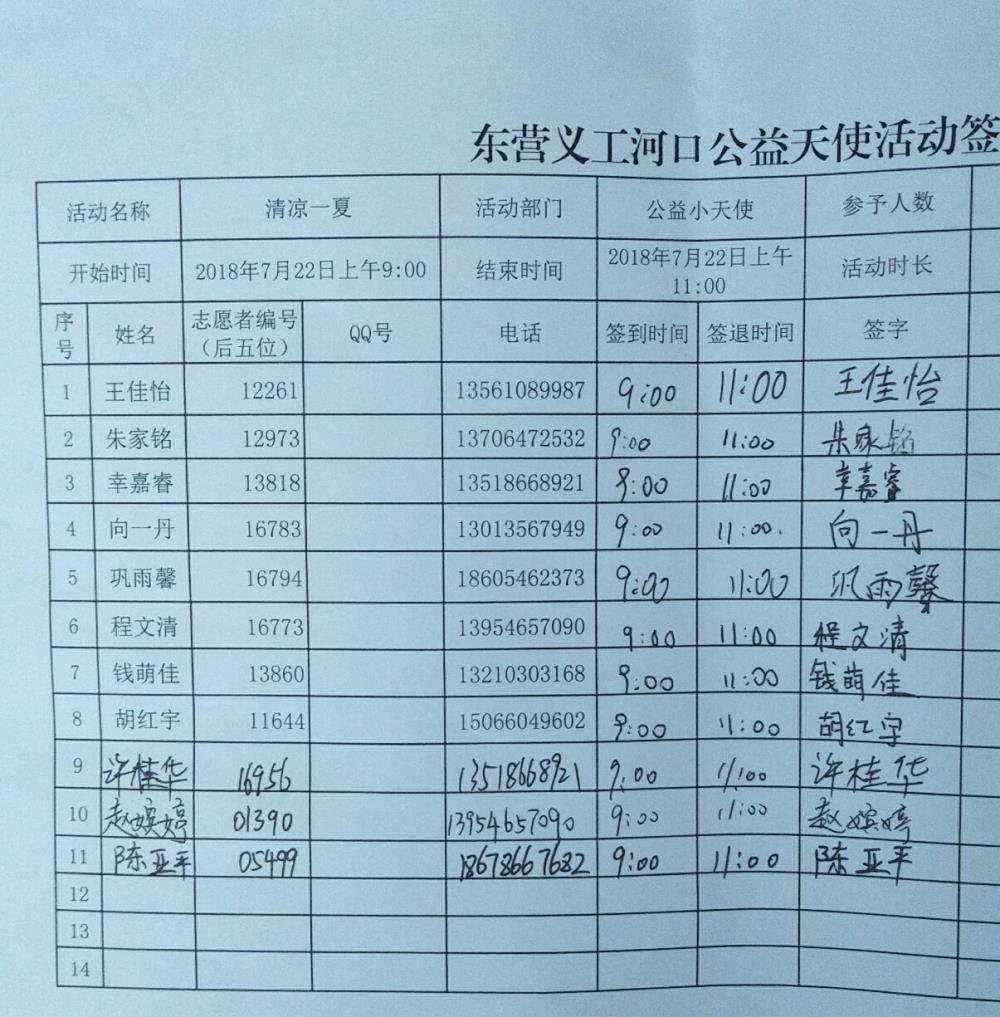 东营义工河口公益天使活动签
活动名称 清凉一夏 活动部门 公益小天使 参予人数
开始时间 2018年7月22日上午9:00 结束时间 2018年7月22日上午11:00 活动时长
序号 姓名 志愿者编号（后五位） QQ号 电话 签到时间 签退时间 签字
1 王佳怡 12261 13561089987 9:00 11:00 王佳怡
2 朱家铭 12973 13706472532 9:00 11:00 朱家铭
3 幸嘉睿 13818 13518668921 9:00 11:00 幸嘉睿
4 向一丹 16783 13013567949 9:00 11:00. 向一丹
5 巩雨馨 16794 18605462373 9:00 11:00 巩雨馨
6 程文清 16773 13954657090 9:00 11:00 程文清
7 钱萌佳 13860 13210303168 9:00 11:00 钱萌佳
8 胡红宇 11644 15066049602 9:00 11:00 胡红宇
9 许桂华 16956 13518668921 9:00 11:00 许桂华
10 赵嫔婷 01390 13954657090 9:00 11:00 赵嫔婷
11 陈亚平 05499 18678667682 9:00 11:00 陈亚平
12
13
14